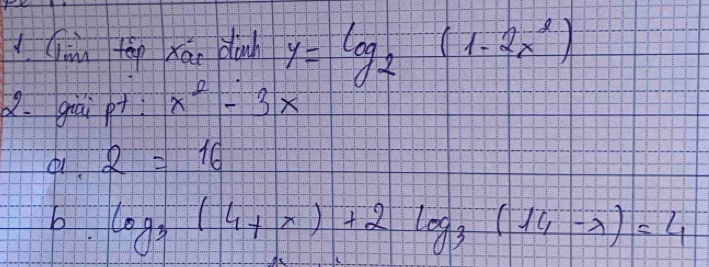 1. Tìm tập xác định y = log₂ (1 - 2x²)
2- giải pt: x² - 3x
a. 2 = 16
b. log₃ (4 + x) + 2 log₃ (14 - x) = 4